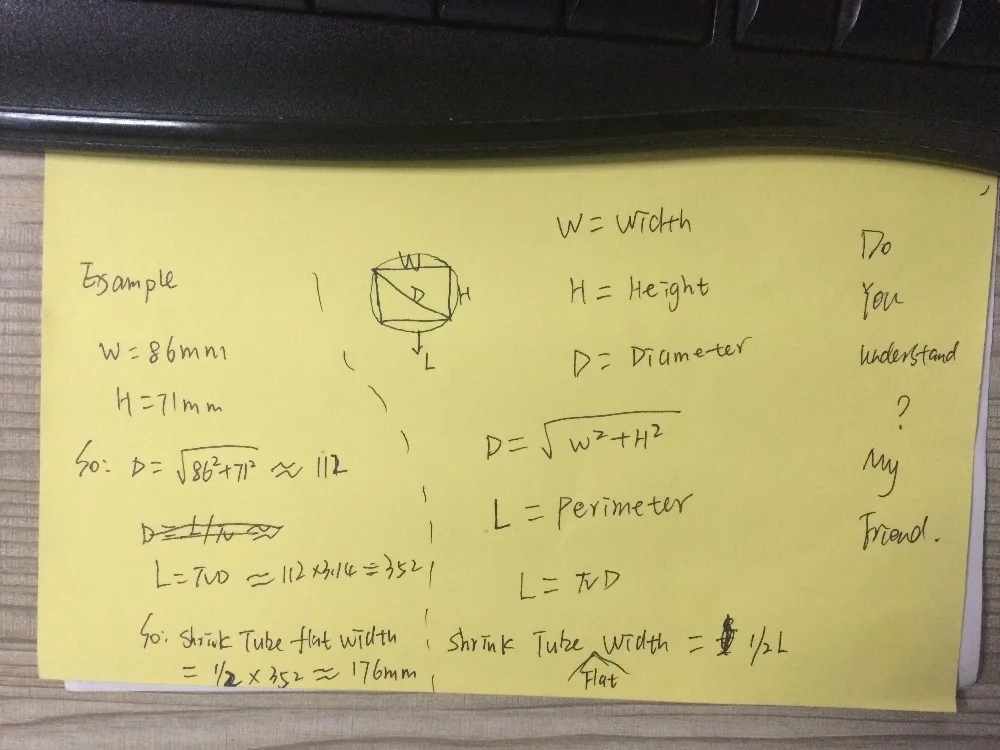 Example
W = 86mm
H = 71mm
So: D = √86²+71² ≈ 112
D = L/π ≈
L = πD ≈ 112 × 3.14 = 352
So: Shrink Tube flat width
= 1/2 × 352 ≈ 176mm
W
D
H
L
W = Width
H = Height
D = Diameter
D = √W²+H²
L = Perimeter
L = πD
Shrink Tube Width = 1/2L
Flat
Do
You
understand
?
My
Friend.